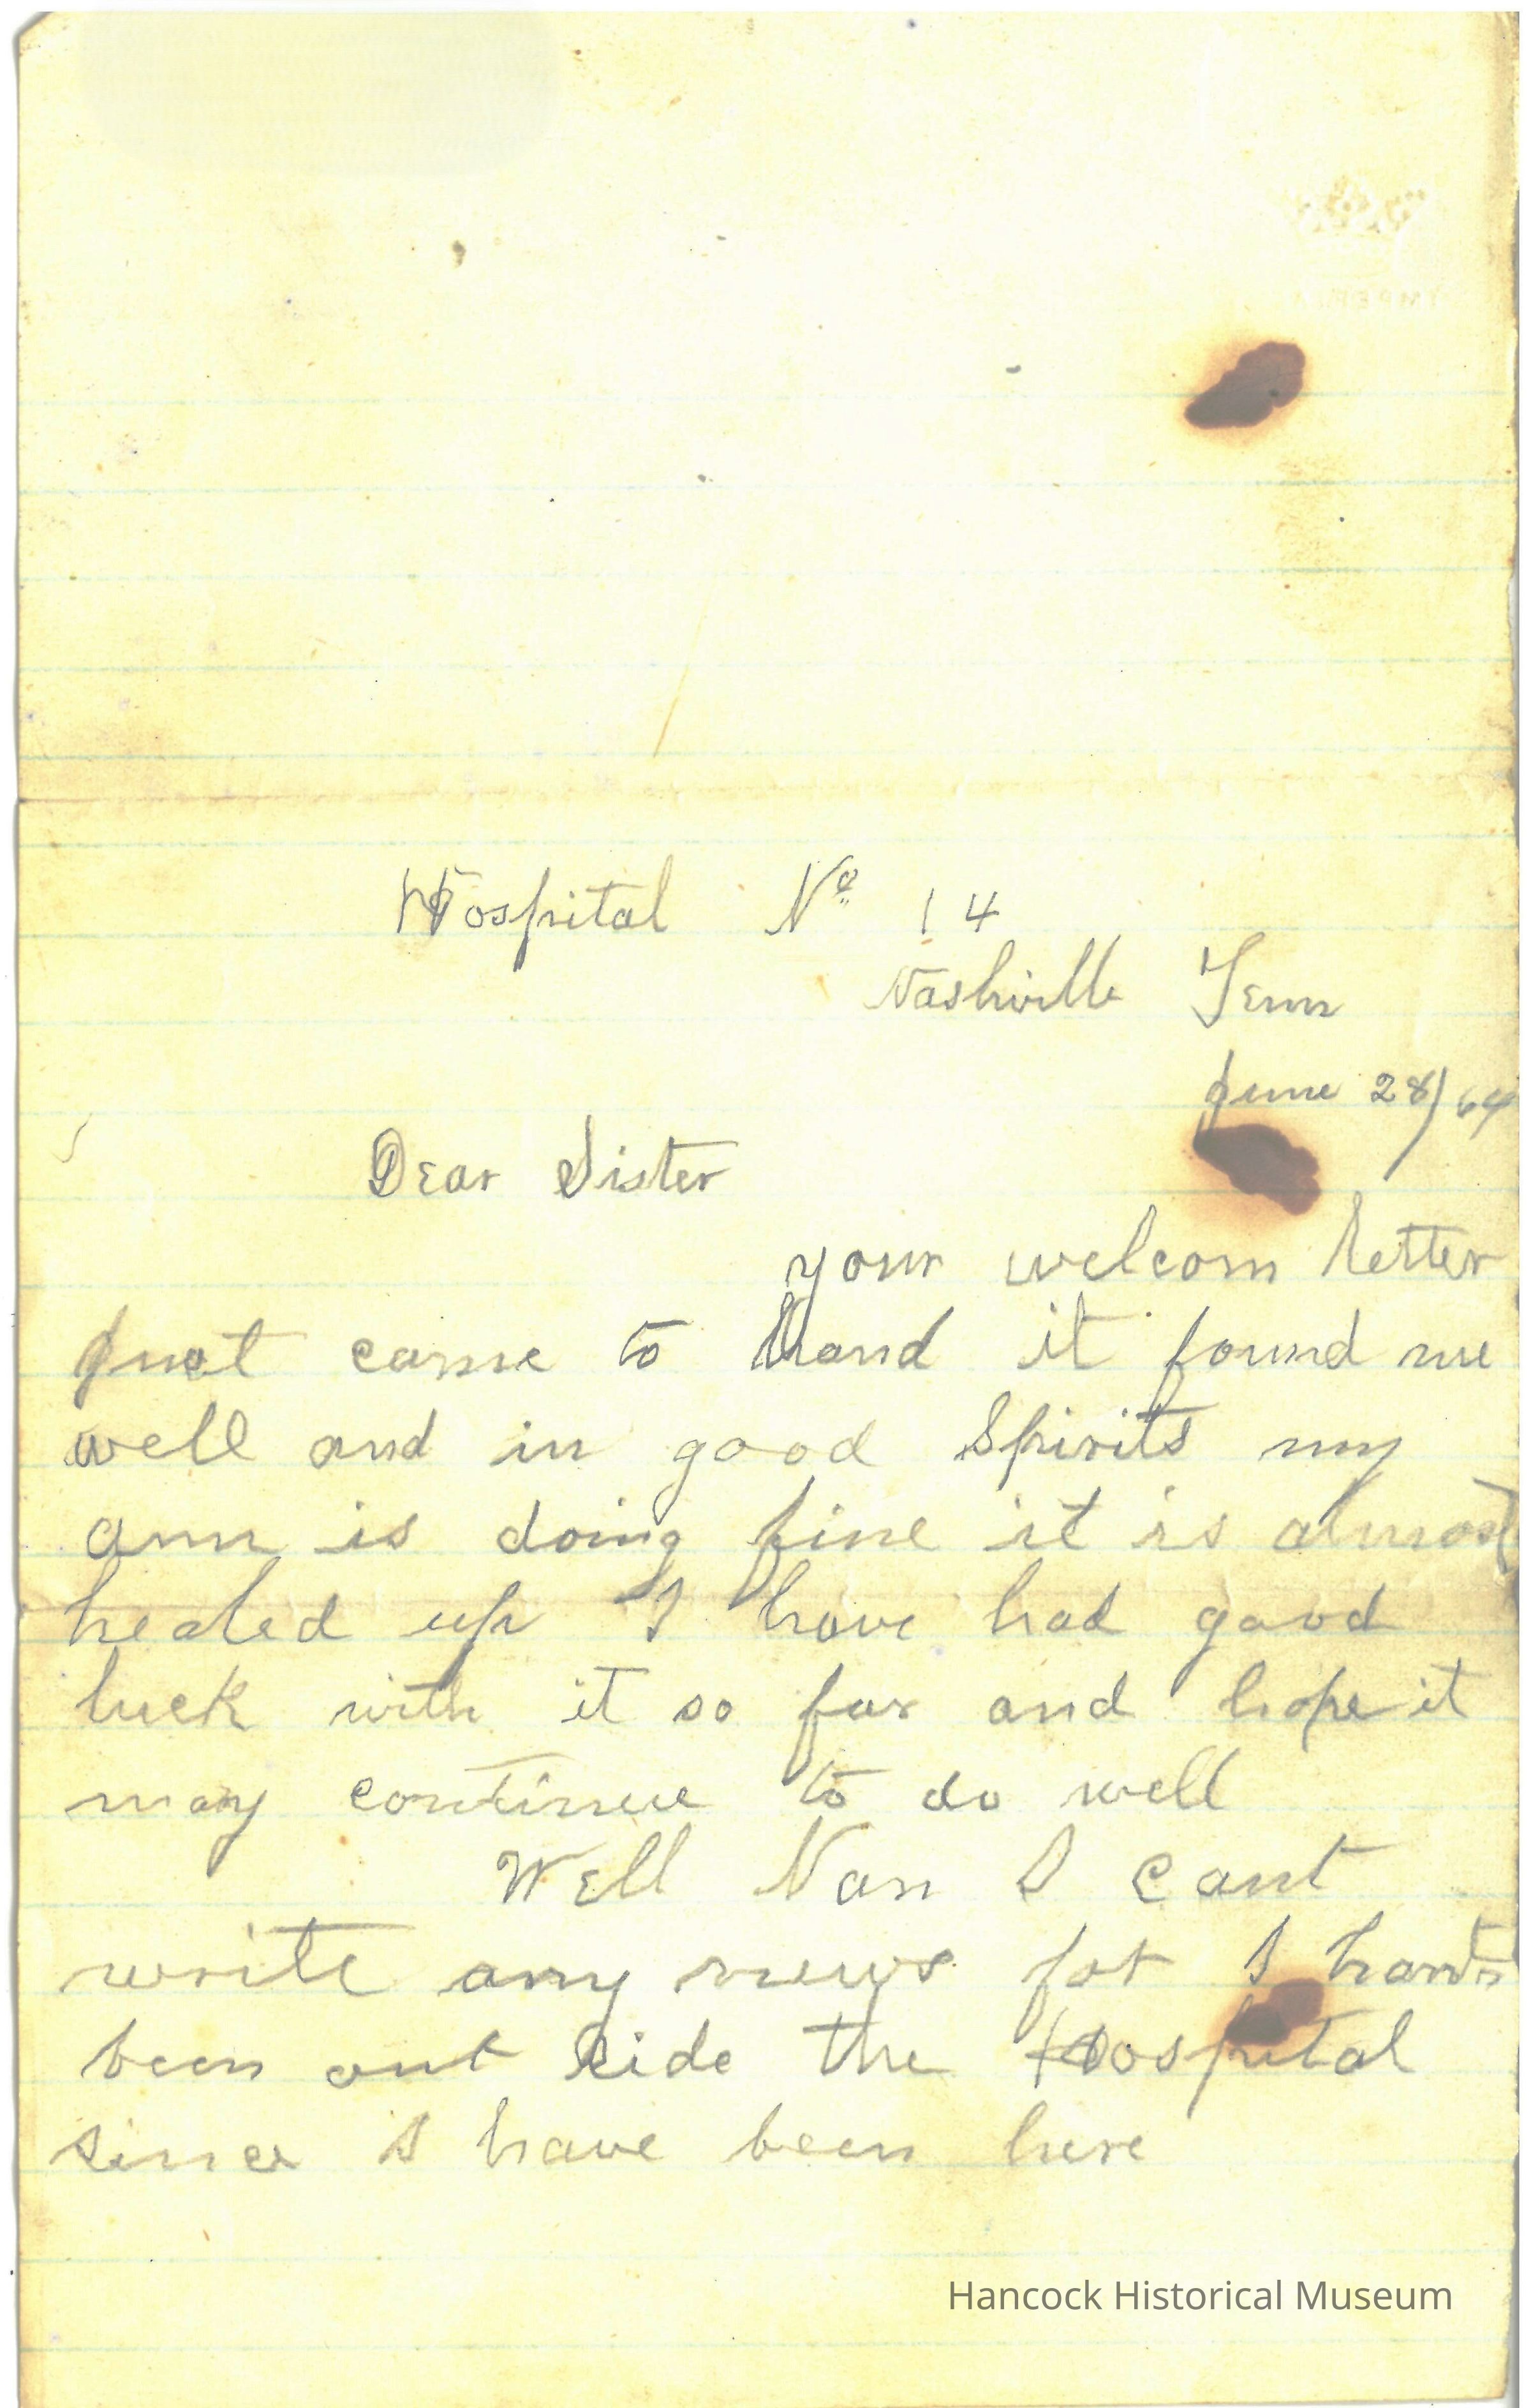 Hospital No 14
Nashville Tenn
June 28/64
Dear Sister
your welcom letter
just came to hand it found me
well and in good Spirits my
arm is doing fine it is almost
healed up I have had good
luck with it so far and hope it
may continue to do well
Well Nan I cant
write any news for I
been out side the Hospital
since I have been here
Hancock Historical Museum